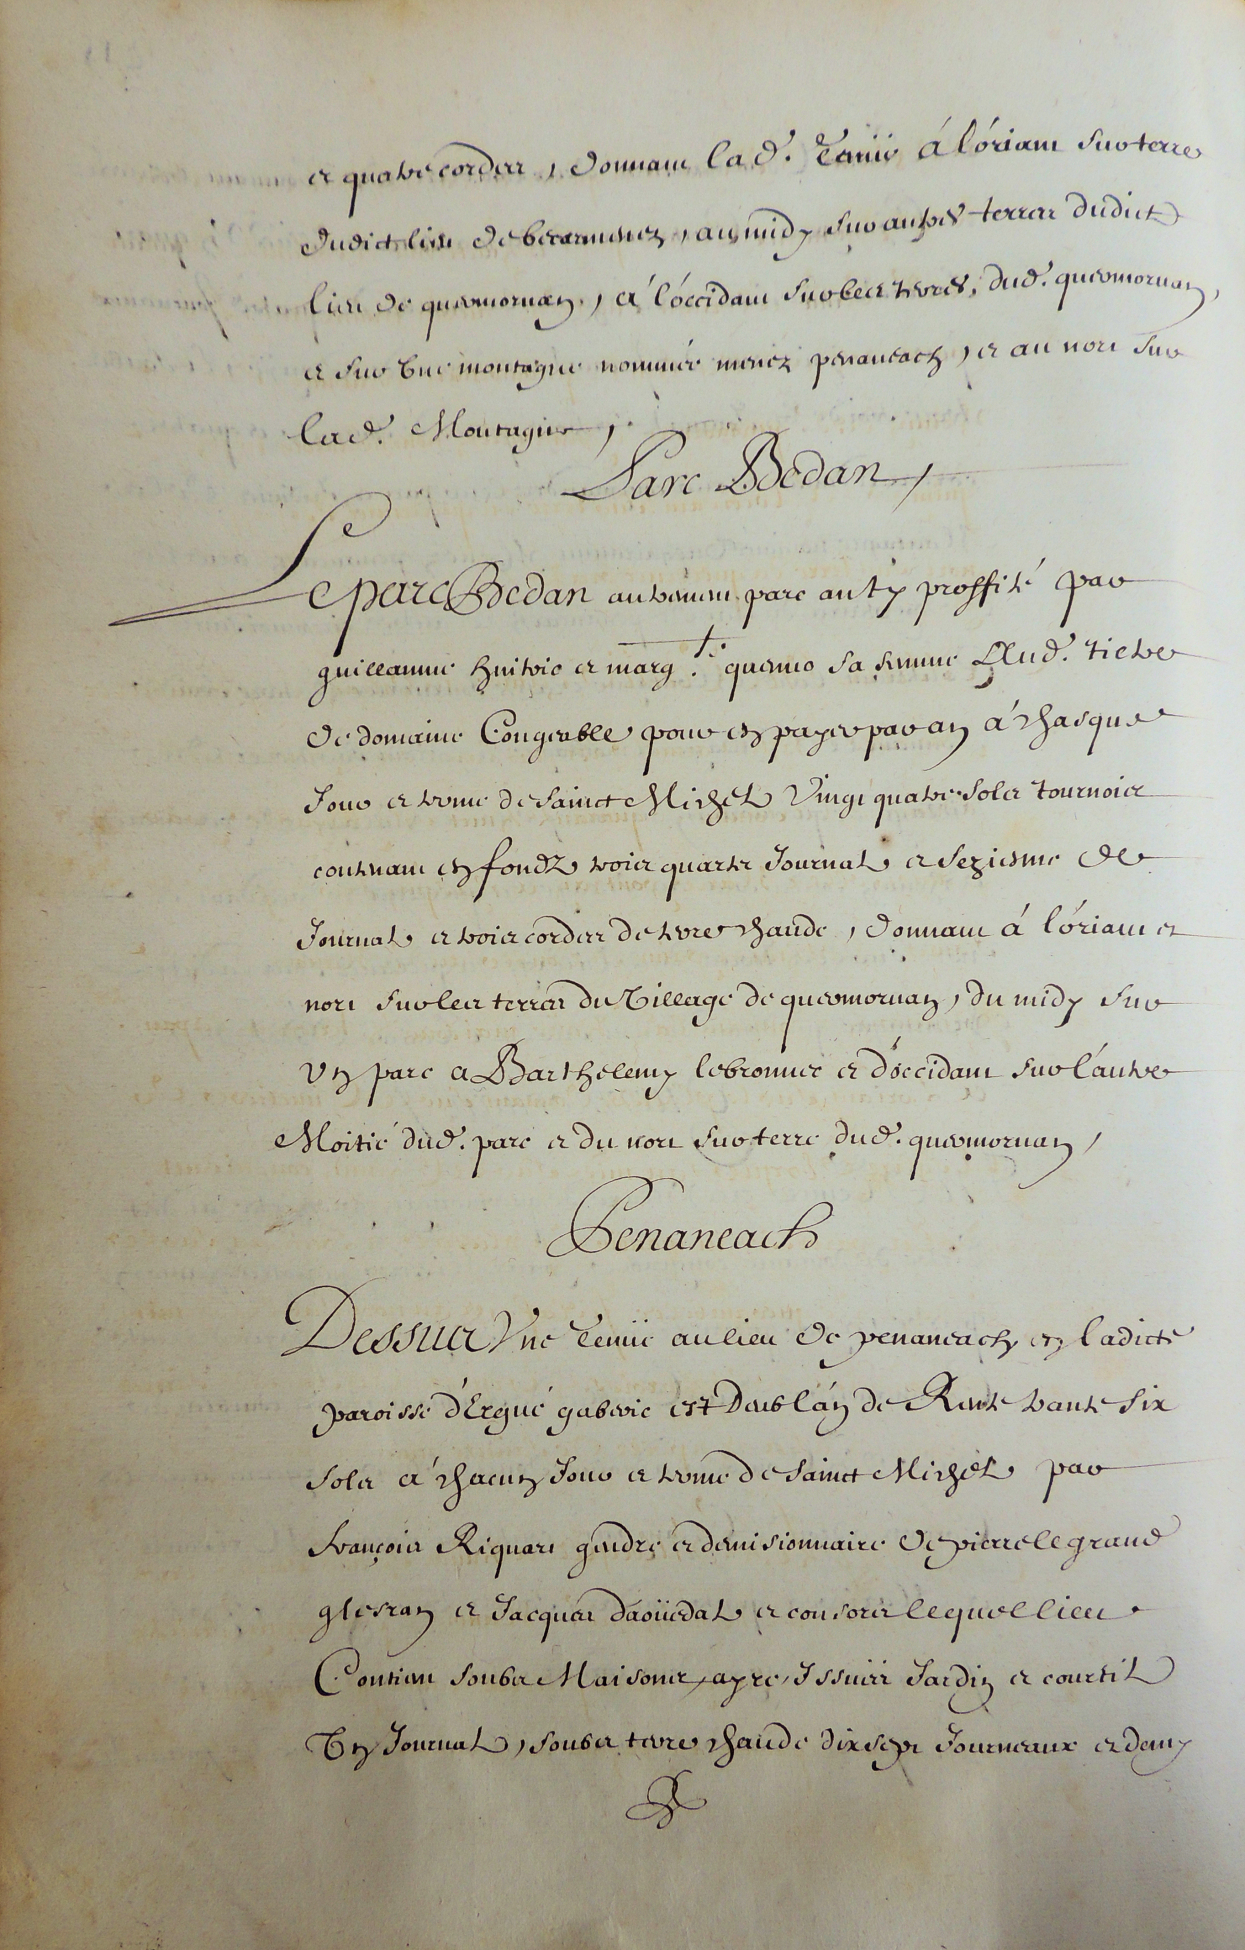 et quatre cordes, donnant lad. Tenüe á l'óriant sur terre
dudict lieu de beVarmenez, au midy sur autres terres dudict
lieu de queumornan, á l'óccidant sur les terres, dud. queumornan,
et sur Vne montagne nommée menez penaneach, et au nort sur
lad. Montagne,
Parc Bedan,
Le parc Bedan autrement parc anty proffité par
guillaume huitric et marg.te quemo sa femme Aud. tictre
de domaine Congeable pour en payer par an á chasque
Jour et terme de Sainct Michel Vingt quatre sols tournois
contenant en fondz trois quarts Journal et seziesme de
Journal et trois cordes de terre chaude, donnant á l'óriant et
nort sur les terres du Village de queumornan, du midy sur
Vn parc a Barthelemy lebronnec et d'óccidant sur l'áutre
Moitié dud. parc et du nort sur terre dud. queumornan,
Penaneach
Dessus Vne Tenüe au lieu de penaneach en ladicte
paroisse d'Ergué gaberic est Deub l'án de Rente trante six
sols á chacun Jour et terme de Sainct Michel par
François Riquart gendre et demisionnaire de pierre le grand
glesran et Jacques daoüedal et consorts lequel lieu
Contient soubs Maisons, ayre, Issües Jardin et courtil
Vn Journal, soubs terre chaude dix sept Journeaux et demy